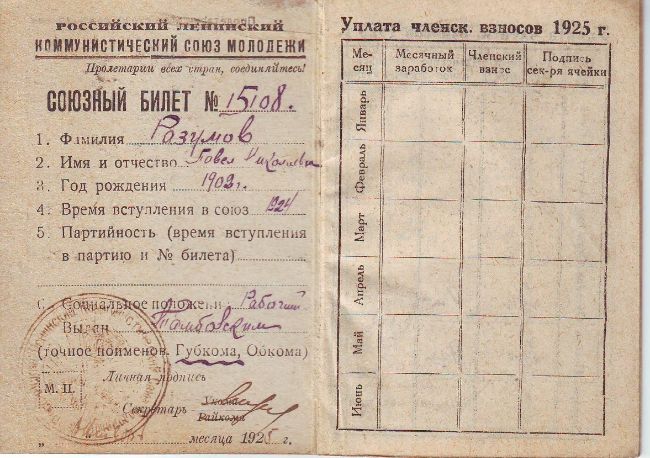 РОССИЙСКИЙ ЛЕНИНСКИЙ
КОММУНИСТИЧЕСКИЙ СОЮЗ МОЛОДЕЖИ
Пролетарии всех стран, соединяйтесь!
СОЮЗНЫЙ БИЛЕТ № 15108.
1. Фамилия Разумов
2. Имя и отчество Павел Николаевич
3. Год рождения 1902 г.
4. Время вступления в союз 1924
5. Партийность (время вступления
в партию и № билета)
6. Социальное положени Рабочий
Выдан Тамбовским
(точное поименов. Губкома, Обкома)
М. П.
Личная подпись
Секретарь Укома
Райкома
„ месяца 1925 г.
Уплата членск. взносов 1925 г.
Ме-
сяц
Месячный
заработок
Членский
взнос
Подпись
сек-ря ячейки
Январь
Февраль
Март
Апрель
Май
Июнь